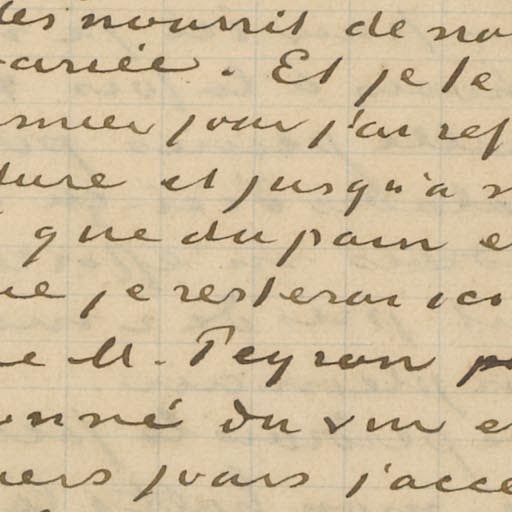 les nourrit de no
variée. Et je te
emier jour j'ai ref
ture et jusqu'à
que du pain e
ue je resterai ici
ue M. Peyron pa
onné du vin e
niers jours j'acce